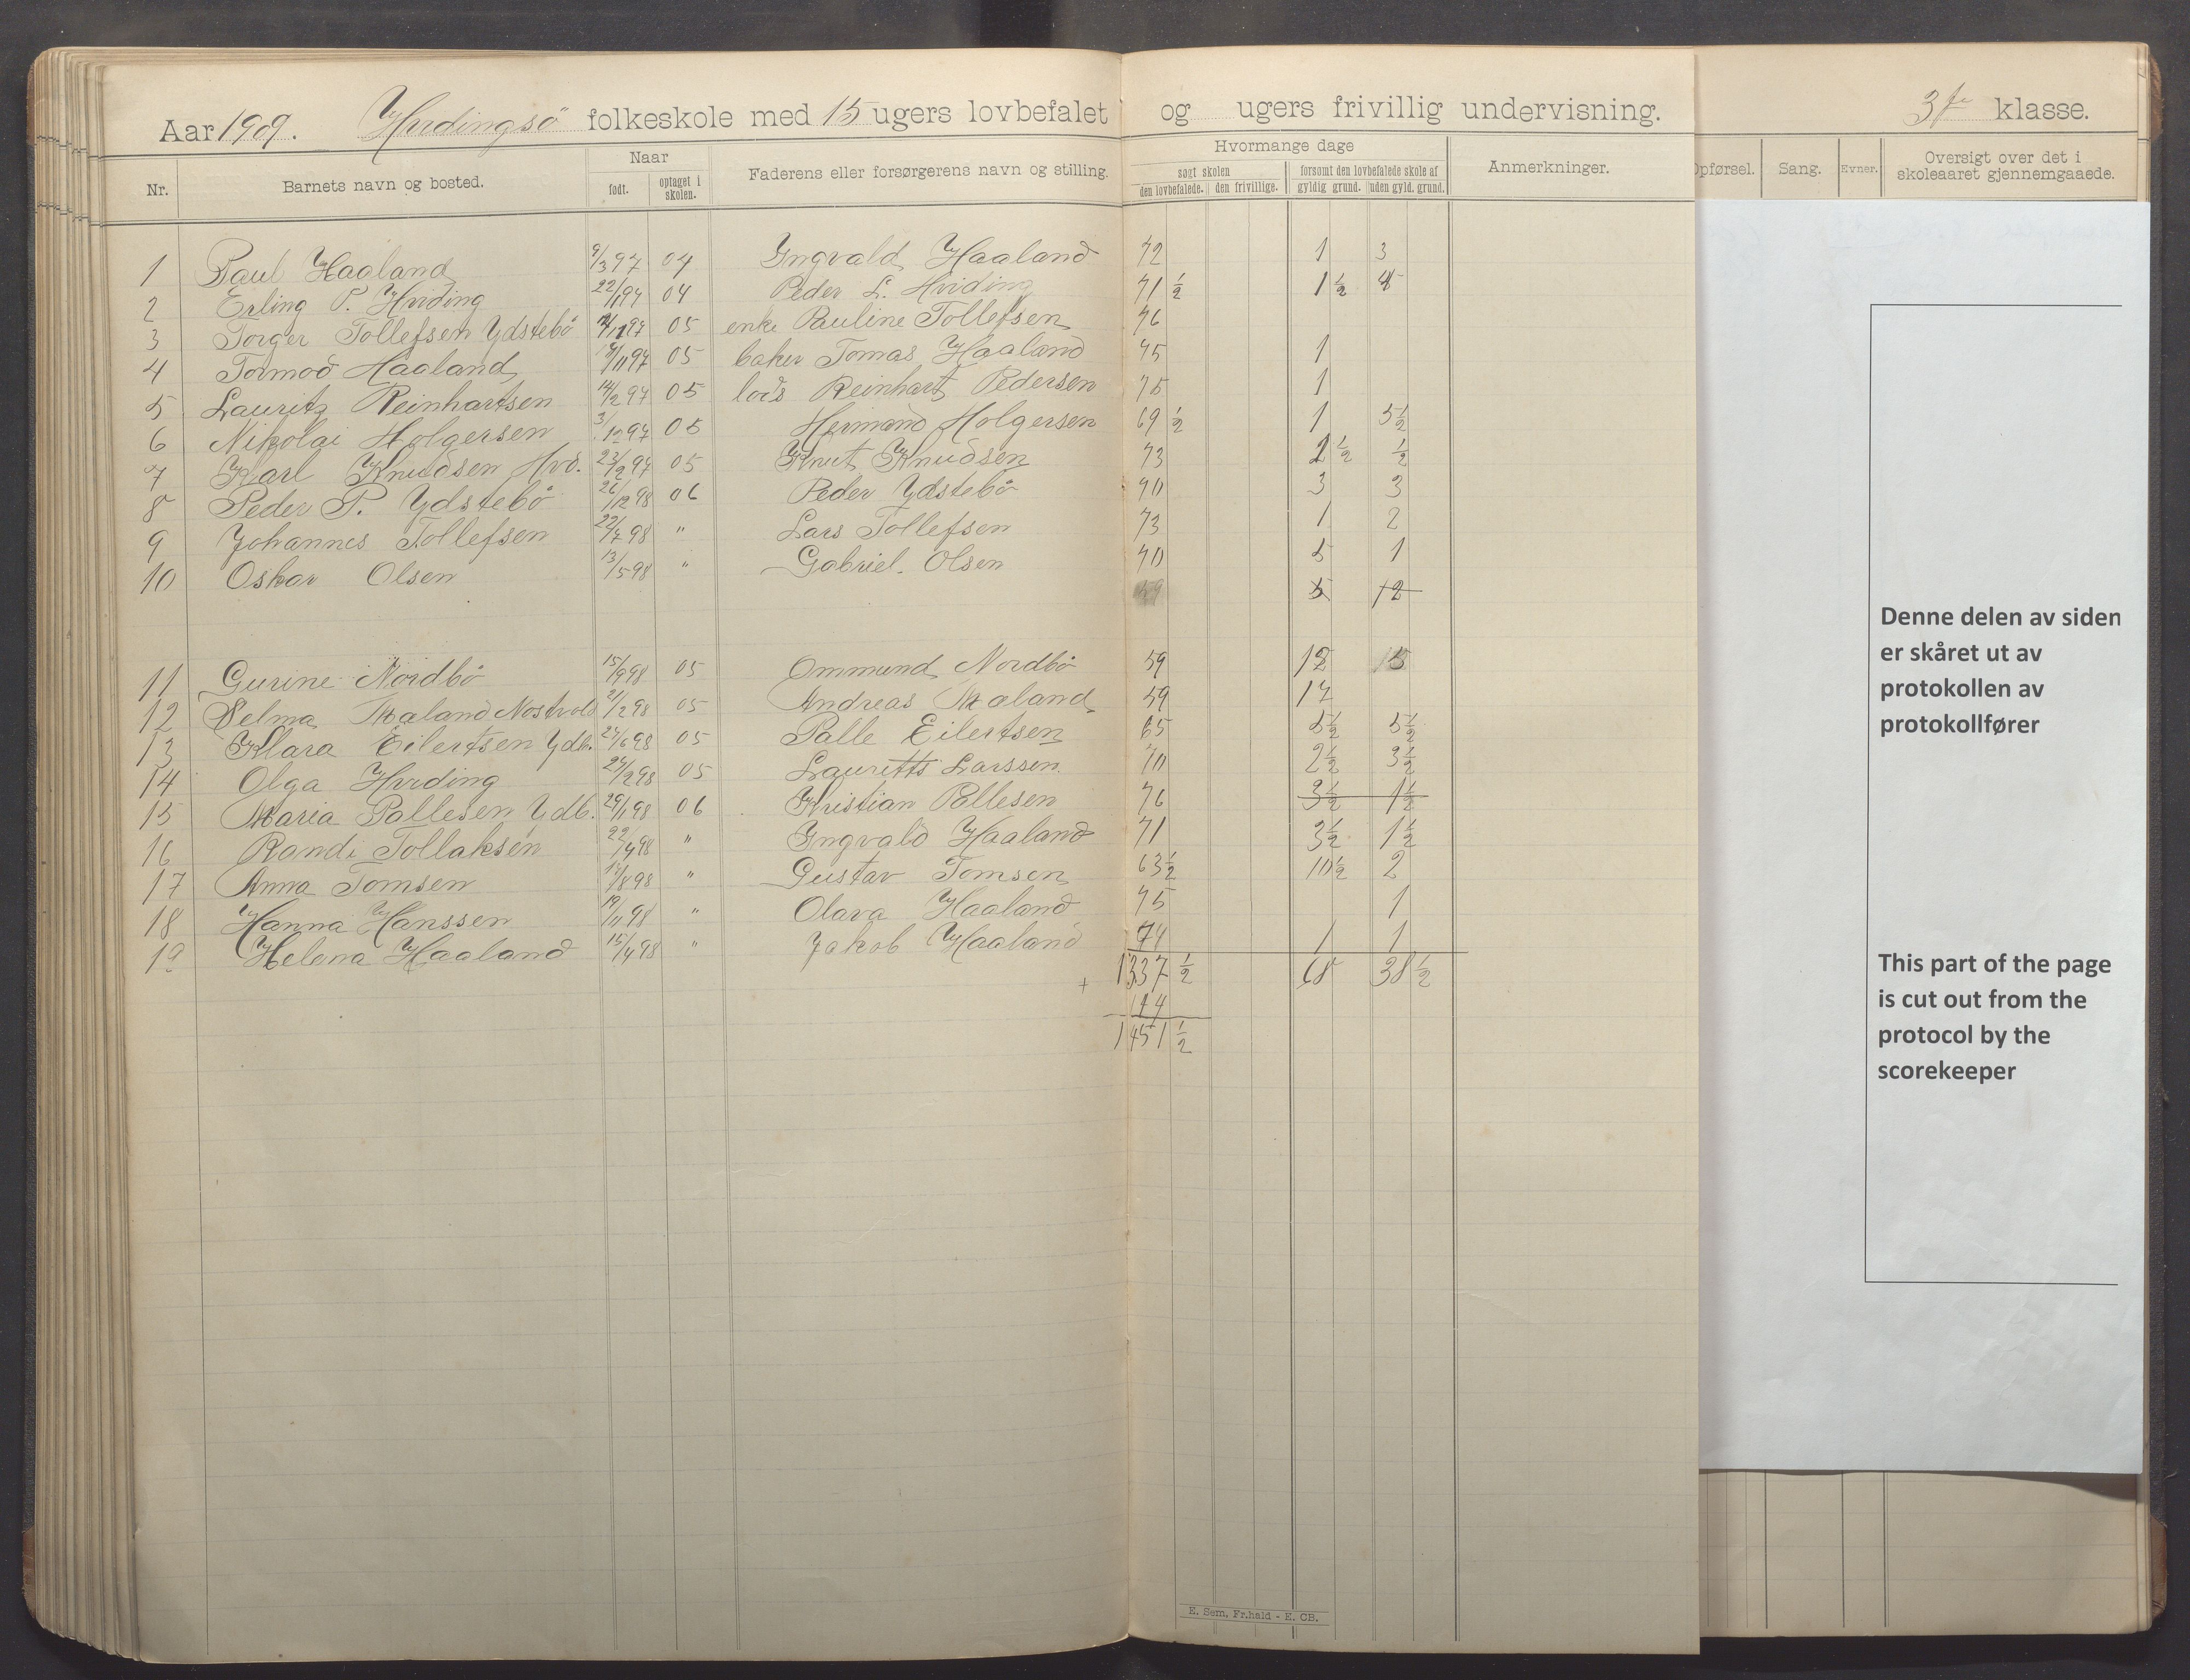 Aar 1909. Hvidingsö folkeskole med 15 ugers lovbefalet og ugers frivillig undervisning. 3die klasse.
Nr. Barnets navn og bosted. Naar født. optaget i skolen. Faderens eller forsørgerens navn og stilling. Hvormange dage søgt skolen den lovbefalede. den frivillige. forsømt den lovbefalede skole af gyldig grund. uden gyld. grund. Anmerkninger. Opførsel. Sang. Evner. Oversigt over det i skoleaaret gjennemgaaede.
1 Paul Haaland 9/3 97 04 Yngvald Haaland 72 1 3
2 Erling P. Hviding 22/1 97 04 Peder L. Hviding 71 ½ 1 ½ 4
3 Torger Tollefsen Ydstebö 97 05 enke Pauline Tollefsen 76
4 Tormod Haaland /11 97 05 baker Tomas Haaland 75 1
5 Lauritz Reinhartsen 14/2 97 05 lods Reinhart Pedersen 75 1
6 Nikolai Holgersen 3/12 97 05 Hermand Holgersen 69 ½ 1 5½
7 Karl Knudsen Hvd. 23/2 97 05 Knut Knudsen 73 2 ½ ½
8 Peder P. Ydstebö 26/12 98 06 Peder Ydstebö 70 3 3
9 Johannes Tollefsen 22/7 98 " Lars Tollefsen 73 1 2
10 Oskar Olsen 13/5 98 " Gabriel Olsen 70 5 1
5 12
11 Gurine Nordbö 15/9 98 05 Ommund Nordbö 59 12 5
12 Selma Mæland Nostvold 21/2 98 05 Andreas Mæland 59 17
13 Klara Eilertsen Ydb. 27/6 98 05 Palle Eilertsen 65 5½ 5½
14 Olga Hviding 24/2 98 05 Lauritts Larssen 70 2½ 3½
15 Maria Pallesen Ydb. 29/1 98 06 Kristian Pallesen 76 3½ 1½
16 Randi Tollaksen 22/4 98 " Yngvald Haaland 71 3½ 1½
17 Anna Tomsen 17/8 98 " Gustav Tomsen 63½ 10½ 2
18 Hanna Hanssen 19/11 98 " Olava Haaland 75 1
19 Helena Haaland 15/4 98 " Jakob Haaland 74 1 1
1337 ½ 68 38 ½
+ 114
1451 ½
E. Sem, Fr.hald - E. CB.
Denne delen av siden
er skåret ut av
protokollen av
protokollfører
This part of the page
is cut out from the
protocol by the
scorekeeper